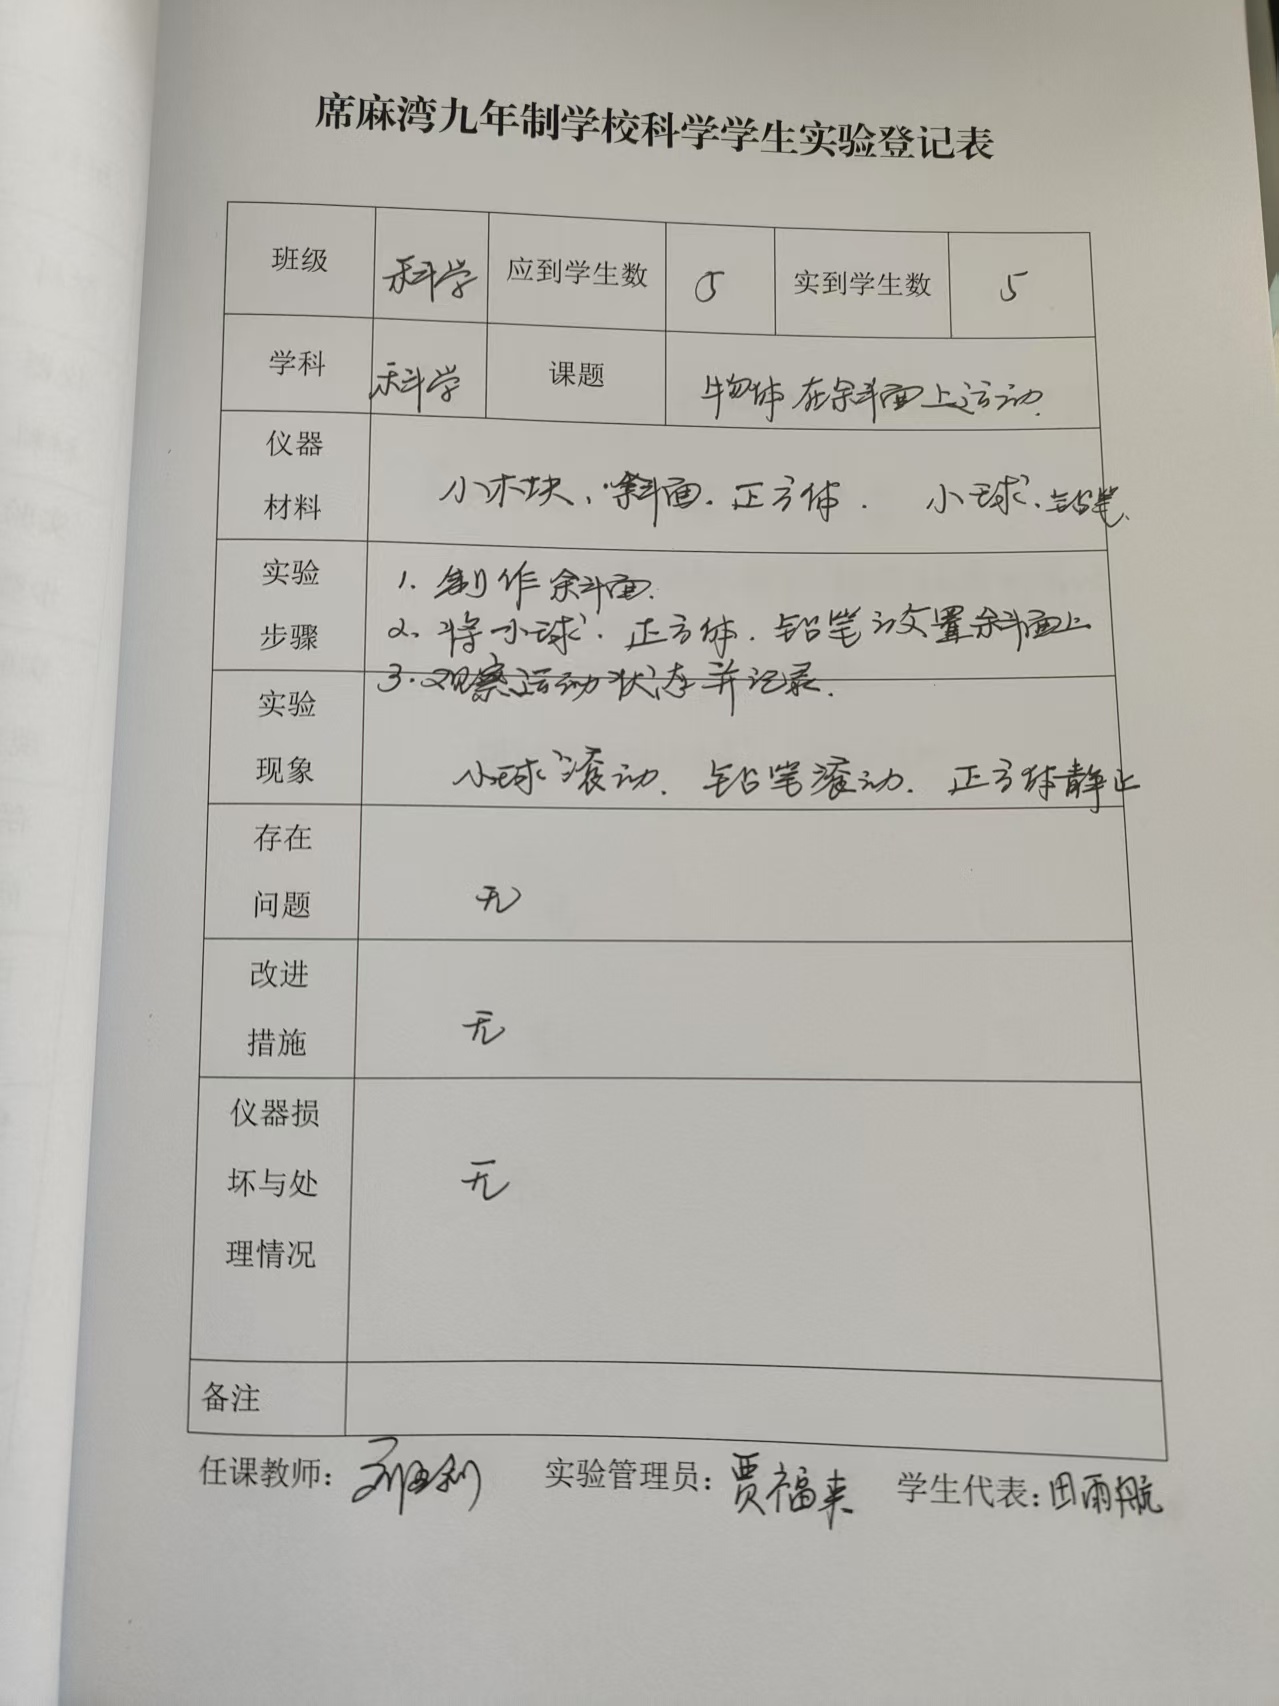 席麻湾九年制学校科学学生实验登记表
班级 科学 应到学生数 5 实到学生数 5
学科 科学 课题 物体在斜面上运动.
仪器
材料
小木块、斜面.正方体. 小球.铅笔.
实验
步骤
1. 制作斜面.
2. 将小球.正方体.铅笔放置斜面上
3.观察运动状态并记录.
实验
现象
小球滚动. 铅笔滚动. 正方体静止
存在
问题
无
改进
措施
无
仪器损
坏与处
理情况
无
备注
任课教师: 实验管理员:贾福来 学生代表:田雨航